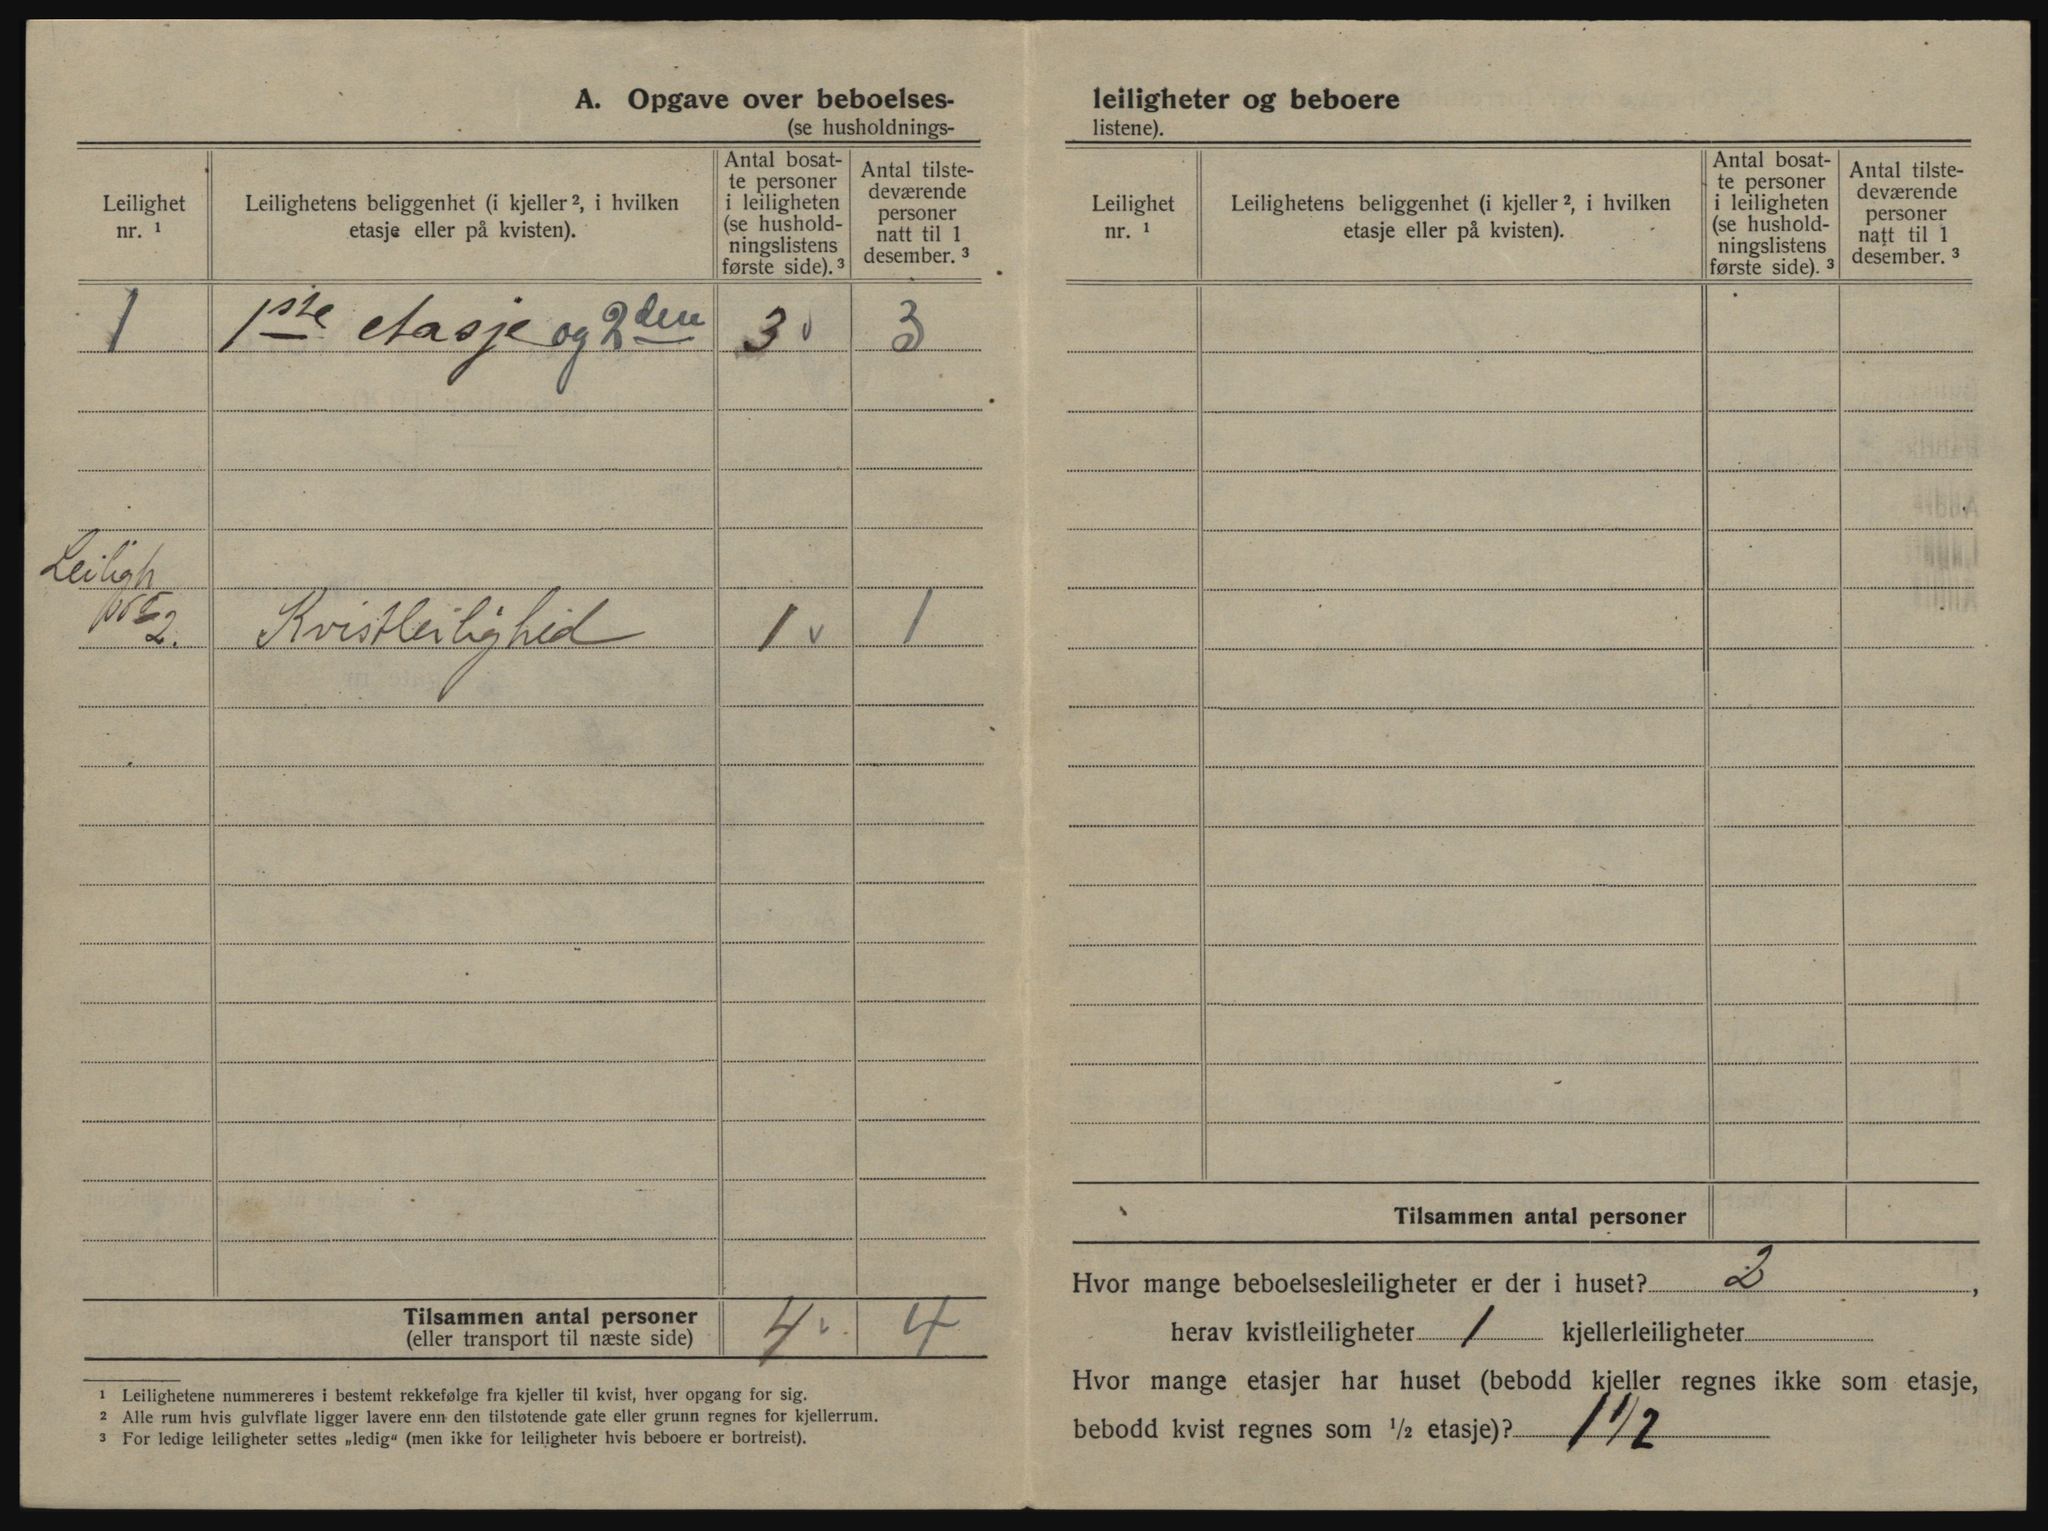 A. Opgave over beboelses-
(se husholdnings-
Leilighet
nr. ¹
Leilighetens beliggenhet (i kjeller ², i hvilken
etasje eller på kvisten).
Antal bosat-
te personer
i leiligheten
(se hushold-
ningslistens
første side). ³
Antal tilste-
deværende
personer
natt til 1
desember. ³
1 1ste etasje og 2den 3 3
Leiligh
2. Kvistleilighed 1 1
Tilsammen antal personer 4 4
(eller transport til næste side)
¹ Leilighetene nummereres i bestemt rekkefølge fra kjeller til kvist, hver opgang for sig.
² Alle rum hvis gulvflate ligger lavere enn den tilstøtende gate eller grunn regnes for kjellerrum.
³ For ledige leiligheter settes „ledig“ (men ikke for leiligheter hvis beboere er bortreist).
leiligheter og beboere
listene).
Leilighet
nr. ¹
Leilighetens beliggenhet (i kjeller ², i hvilken
etasje eller på kvisten).
Antal bosat-
te personer
i leiligheten
(se hushold-
ningslistens
første side). ³
Antal tilste-
deværende
personer
natt til 1
desember. ³
Tilsammen antal personer
Hvor mange beboelsesleiligheter er der i huset? 2 ,
herav kvistleiligheter 1 kjellerleiligheter
Hvor mange etasjer har huset (bebodd kjeller regnes ikke som etasje,
bebodd kvist regnes som ½ etasje)? 1 1/2